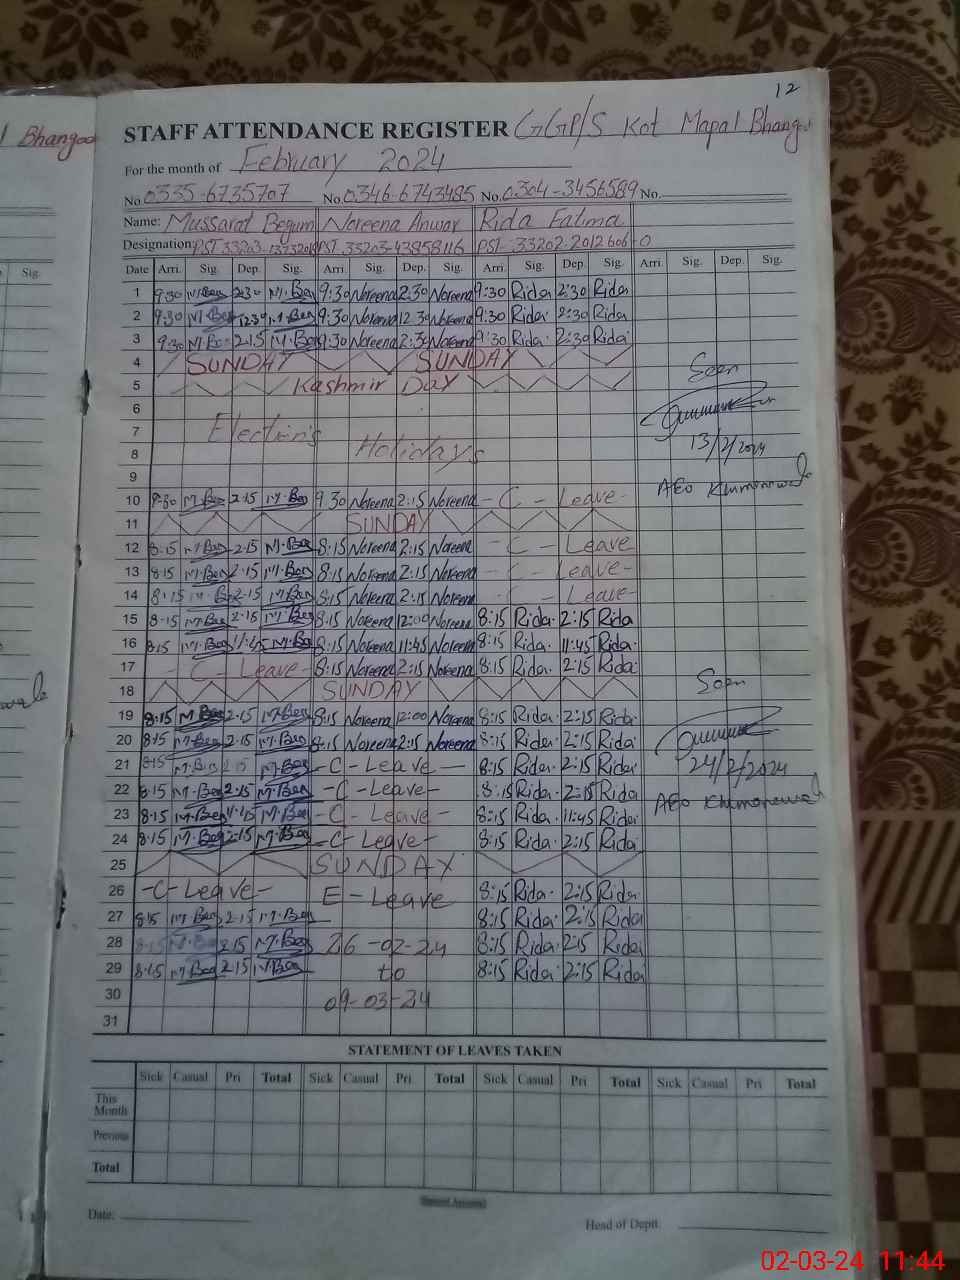 12
l Bhangoo
STAFF ATTENDANCE REGISTER GGP/S Kot Mapal Bhangoo
For the month of February 2024
No. 0335-6735707 No. 0346-6743485 No. 0304-3456589 No.
Name: Mussarat Begum Noreena Anwar Rida Fatima
Designation: PST PST 33203-43858116 PST 33202-2012606-0
Sig. Date Arri. Sig. Dep. Sig. Arri. Sig. Dep. Sig. Arri. Sig. Dep. Sig. Arri. Sig. Dep. Sig.
1 9:30 M.Beg 2:30 M.Beg 9:30 Noreena 2:30 Noreena 9:30 Rida 2:30 Rida
2 9:30 M.Beg 12:30 M.Beg 9:30 Noreena 12:30 Noreena 9:30 Rida 2:30 Rida
3 9:30 M.Beg 2:15 M.Beg 9:30 Noreena 2:30 Noreena 9:30 Rida 2:30 Rida
4 SUNDAY SUNDAY
Seen
5 Kashmir Day
6
7 Election's
13/2/2024
8 Holidays
9
AEO
10 9:30 M.Beg 2:15 M.Beg 9:30 Noreena 2:15 Noreena - C - Leave -
11 SUNDAY
12 8:15 M.Beg 2:15 M.Beg 8:15 Noreena 2:15 Noreena - C - Leave
13 8:15 M.Beg 2:15 M.Beg 8:15 Noreena 2:15 Noreena - C - Leave -
14 8:15 M.Beg 2:15 M.Beg 8:15 Noreena 2:15 Noreena - C - Leave -
15 8:15 M.Beg 2:15 M.Beg 8:15 Noreena 12:00 Noreena 8:15 Rida 2:15 Rida
16 8:15 M.Beg 11:45 M.Beg 8:15 Noreena 11:45 Noreena 8:15 Rida 11:45 Rida
17 - C - Leave - 8:15 Noreena 2:15 Noreena 8:15 Rida 2:15 Rida
18 SUNDAY
Seen
19 8:15 M.Beg 2:15 M.Beg 8:15 Noreena 12:00 Noreena 8:15 Rida 2:15 Rida
20 8:15 M.Beg 2:15 M.Beg 8:15 Noreena 2:15 Noreena 8:15 Rida 2:15 Rida
21 8:15 M.Beg 2:15 M.Beg - C - Leave - 8:15 Rida 2:15 Rida
24/2/2024
22 8:15 M.Beg 2:15 M.Beg - C - Leave - 8:15 Rida 2:15 Rida
AEO
23 8:15 M.Beg 11:45 M.Beg - C - Leave - 8:15 Rida 11:45 Rida
24 8:15 M.Beg 2:15 M.Beg - C - Leave - 8:15 Rida 2:15 Rida
25 SUNDAY
26 - C - Leave - E - Leave 8:15 Rida 2:15 Rida
27 8:15 M.Beg 2:15 M.Beg 8:15 Rida 2:15 Rida
28 8:15 M.Beg 2:15 M.Beg 26-02-24 8:15 Rida 2:15 Rida
29 8:15 M.Beg 2:15 M.Beg to 8:15 Rida 2:15 Rida
30 09-03-24
31
STATEMENT OF LEAVES TAKEN
Sick Casual Pri Total Sick Casual Pri Total Sick Casual Pri Total Sick Casual Pri Total
This Month
Previous
Total
Date:
Head of Deptt.
02-03-24 11:44